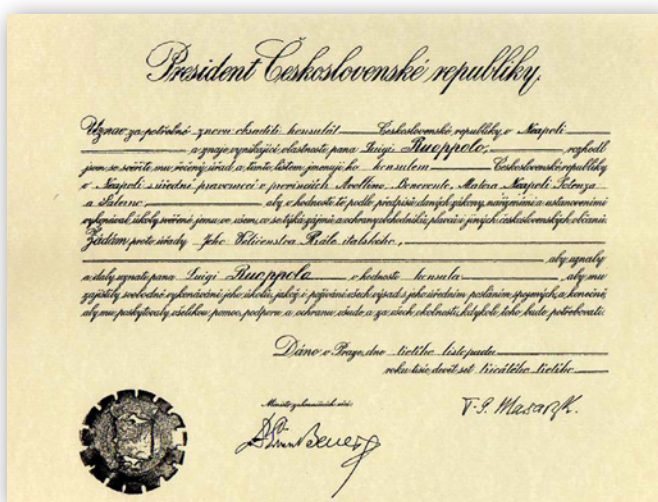 President Československé republiky,
Uznav za potřebné znovu obsaditi konsulát Československé republiky v Neapoli
a znaje vynikající vlastnosti pana Luigi Ruoppolo, rozhodl
jsem se svěřiti mu řečený úřad a tímto listem jmenuji ho konsulem Československé republiky
v Neapoli s úřední pravomocí v provincích Avellino, Benevento, Matera, Neapoli, Potenza
a Salerno, aby v hodnosti té podle předpisů daných zákony, nařízeními a ustanoveními
vykonával úkoly svěřené jemu ve všem, co se týká zájmů a ochrany obchodníků, plavců i jiných československých občanů.
Žádám proto úřady Jeho Veličenstva Krále italského,
aby uznaly
a daly uznati pana Luigi Ruoppolo v hodnosti konsula aby mu
zajistily svobodné vykonávání jeho úkolů, jakož i požívání všech výsad s jeho úředním posláním spojených, a konečně,
aby mu poskytovaly všelikou pomoc, podporu a ochranu všude a za všech okolností, kdykoliv toho bude potřebovati.
Dáno v Praze, dne třetího listopadu
roku tisíc devět set třicátého třetího.
Ministr zahraničních věcí:
T. G. Masaryk.
Dr Edvard Beneš